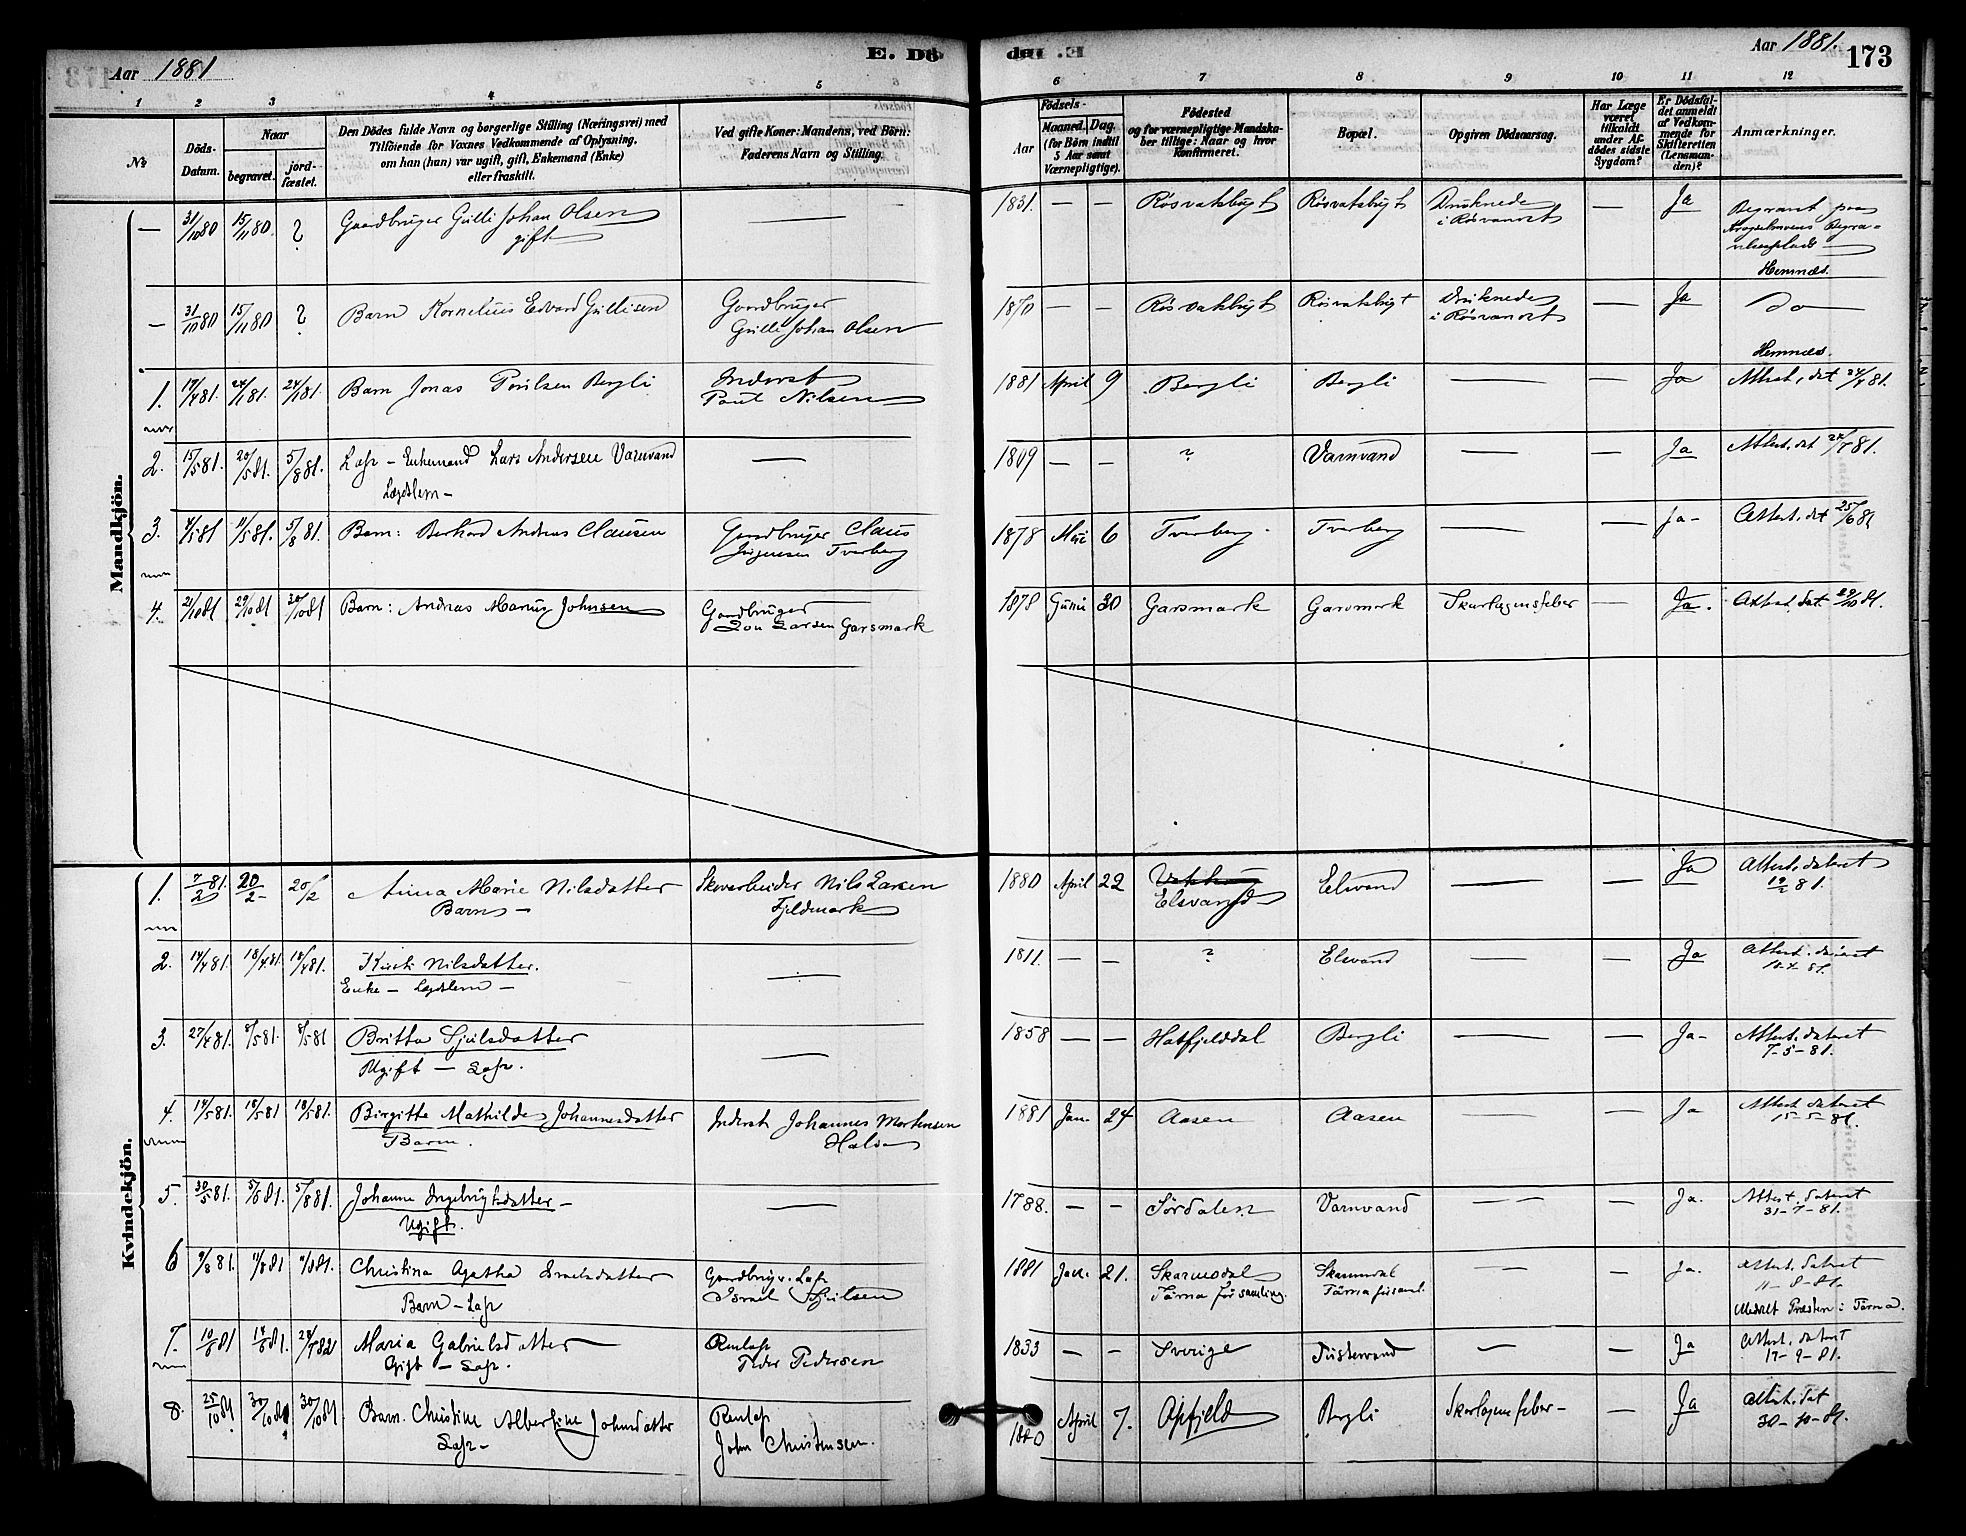 Aar 1881
E. Dö
1 2 3 4 5
No
Döds-Datum.
Naar
begravet.
jord-fæstet.
Den Dödes fulde Navn og borgerlige Stilling (Næringsvei) med
Tilföiende for Voxnes Vedkommende af Oplysning,
om han (hun) var ugift, gift, Enkemand (Enke)
eller fraskilt.
Ved gifte Koner: Mandens, ved Börn:
Faderens Navn og Stilling.
Mandkjön.
— 31/10 80 15/11 80. ? Gaardbruger Gulli Johan Olsen —
gift
— 31/10 80 15/11 80 ? Barn Kornelius Edvard Gullisen Gaardbruger
Gulli Johan Olsen
1. 17/4 81. 24/1 81. 24/1 81. Barn Jonas Poulsen Bergli Inderst
Poul Nilsen
2. 15/5 81. 20/5 81. 5/8 81. Lap - Enkemand Lars Andersen Varnvand —
Lægdslem -
3. 4/5 81 11/5 81. 5/8 81. Barn: Berhard Andreas Clausen Gaardbruger Claus
Jörgensen Tverberg
4. 21/10 81 29/10 81 30/10 81 Barn: Andreas Marius Johnsen Gaardbruger
Jon Larsen Garsmark
Kvindekjön.
1. 7/2 81. 20/2 - 20/2 Anna Marie Nilsdatter Skovarbeider Nils Larsen
Barn - Fjeldmark
2. 14/4 81. 18/4 81. 18/4 81. Kirsti Nilsdatter. —
Enke - Lægdslem -
3. 27/4 81. 8/5 81. 8/5 81 Britta Sjulsdatter —
Ugift - Lap.
4. 14/5 81. 18/5 81 18/5 81. Birgitte Mathilde Johannesdatter Inderst Johannes Mortensen
Barn.
5. 30/5 81. 5/6 81. 5/8 81. Johanne Ingebrigtsdatter - —
Ugift.
6 9/8 81. 11/8 81 11/8 81. Christina Agatha Israelsdatter Gaardbrug. Lap
Barn - Lap Israel Sjulsen
7. 10/6 81 14/6 81. 24/7 82 Maria Gabrielsdatter Renlap
Gift - Lap. Peder Pedersen
8. 25/10 81 30/10 81 30/10 81 Barn. Christine Albertine Johnsdatter Renlap
Lap - John Christensen.
Aar 1881. 173
6 7 8 9 10 11 12
Aar
Födsels-
Maaned. Dag.
(for Börn indtil
5 Aar samt
Værnepligtige).
Födested
og for værnepligtige Mandska-
ber tillige: Naar og hvor
Konfirmeret.
Bopæl.
Opgiven Dödsaarsag.
Har Læge
været
tilkaldt
under Af-
dödes sidste
Sygdom?
Er Dödsfal-
det anmeldt
af Vedkom-
mende for
Skifteretten
(Lensman-
den)?
Anmærkninger.
1831. — — Rösvatsbugt Rösvatsbugt Druknede — Ja Begravet paa
i Rösvandet
Hemnæs.
1870 — — Rösvatsbugt Rösvatsbugt Druknede — Ja Do
i Rösvandet
Hemnæs.
1881 April 9 Bergli Bergli — — Ja Attest, dat 24/4 81.
1809 — — ? Varnvand — — Ja Attest. dat 24/7 81.
1878 Mai 6 Tverberg Tverberg — — Ja - Attest. dat 25/6 81
1878 Juni 30 Garsmark Garsmark Skarlagensfeber — Ja. Attest. dat 29/10 81.
1880 April 22 Elsvand — — Ja Attest. dateret
Elsvand 19/2 81.
1811. — — ? Elsvand — — Ja Attest. dateret
18-4-81.
1858 — — Hatfjelddal Bergli — — Ja - Attest. dateret
7-5-81.
1881 Jan. 24 Aasen Aasen — — Ja Attest. dateret
15-5-81.
1788. — — Sördalen Varnvand — — Ja. Attest. dateret
31-7-81.
1881 Jan. 21. Skarmodal Skarmodal — — Ja. Attest. dateret
Tärna församling. Tärna församl. 11-8-81.
Meddelt Præsten i Tärna.
1833 — — Sverige Tustervand — — Ja Attest. dateret
17-9-81.
1880 April 7. Apfjeld Bergli Skarlagensfeber - — Ja Attest. dat
30-10-81.